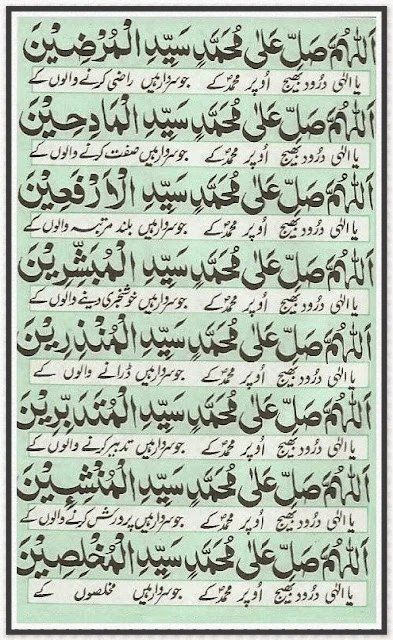 اَللّٰهُمَّ صَلِّ عَلٰى مُحَمَّدٍ سَيِّدِ الْمُرْضِيْنَ
یا الٰہی درُود بھیج اُوپر محمدؐ کے جو سردار ہیں راضی کرنے والوں کے
اَللّٰهُمَّ صَلِّ عَلٰى مُحَمَّدٍ سَيِّدِ الْمَادِحِيْنَ
یا الٰہی درُود بھیج اُوپر محمدؐ کے جو سردار ہیں صفت کرنے والوں کے
اَللّٰهُمَّ صَلِّ عَلٰى مُحَمَّدٍ سَيِّدِ الْاَرْفَعِيْنَ
یا الٰہی درُود بھیج اُوپر محمدؐ کے جو سردار ہیں بلند مرتبہ والوں کے
اَللّٰهُمَّ صَلِّ عَلٰى مُحَمَّدٍ سَيِّدِ الْمُبَشِّرِيْنَ
یا الٰہی درُود بھیج اُوپر محمدؐ کے جو سردار ہیں خوشخبری دینے والوں کے
اَللّٰهُمَّ صَلِّ عَلٰى مُحَمَّدٍ سَيِّدِ الْمُنْذِرِيْنَ
یا الٰہی درُود بھیج اُوپر محمدؐ کے جو سردار ہیں ڈرانے والوں کے
اَللّٰهُمَّ صَلِّ عَلٰى مُحَمَّدٍ سَيِّدِ الْمُتَدَبِّرِيْنَ
یا الٰہی درُود بھیج اُوپر محمدؐ کے جو سردار ہیں تدبیر کرنے والوں کے
اَللّٰهُمَّ صَلِّ عَلٰى مُحَمَّدٍ سَيِّدِ الْمُنْشِئِيْنَ
یا الٰہی درُود بھیج اُوپر محمدؐ کے جو سردار ہیں پرورش کرنے والوں کے
اَللّٰهُمَّ صَلِّ عَلٰى مُحَمَّدٍ سَيِّدِ الْمُخْلِصِيْنَ
یا الٰہی درُود بھیج اُوپر محمدؐ کے جو سردار ہیں مخلصوں کے